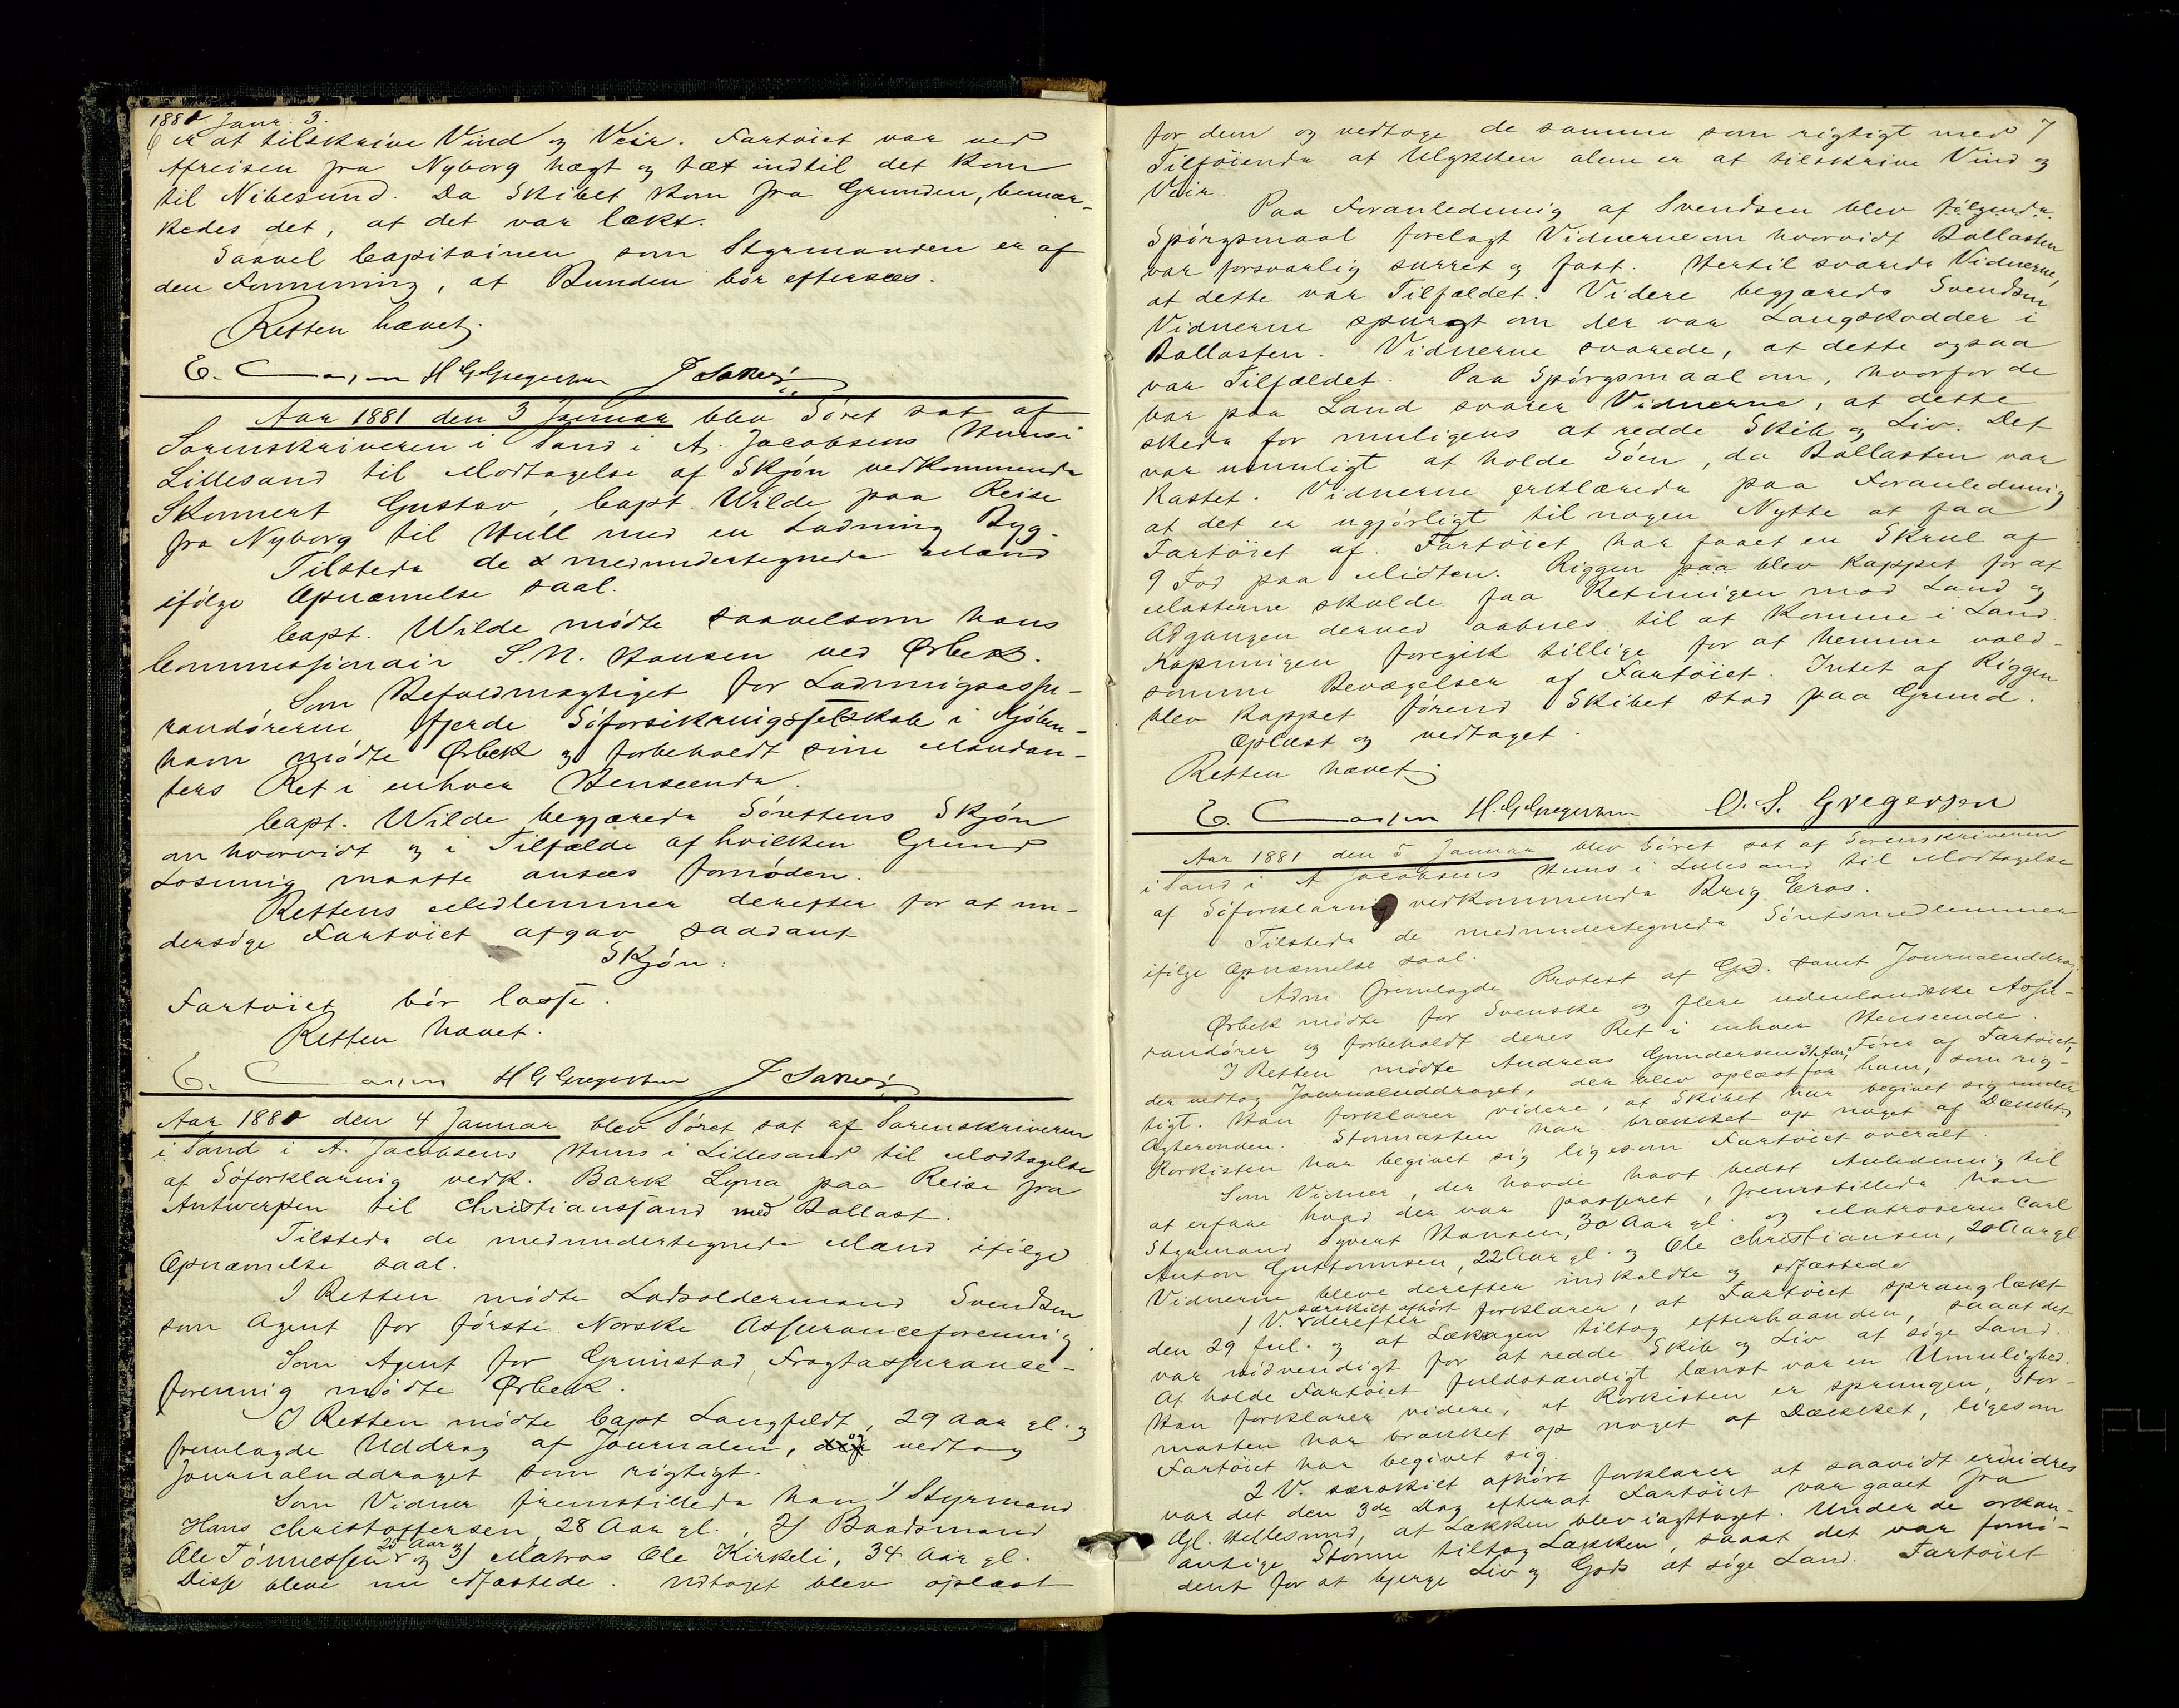 1881 Janr. 3.
6 er at tilskrive Vind og Veir. Fartöiet var ved
Afreisen fra Nyborg tægt og tæt indtil det kom
til Nibesund. Da Skibet kom fra Grunden, bemær-
kedes det, at det var lækt.
Saavel Capitainen som Styrmanden er af
den Formening, at Bunden bör eftersees.
Retten hævet.
H G Gregersen
Aar 1881 den 3 Januar blev Söret sat af
Sorenskriveren i Sand i A. Jacobsens Huus i
Lillesand til Modtagelse af Skjön vedkommende
Skonnert Gustav, Capt. Wilde paa Reise
fra Nyborg til Hull med en Ladning Byg.
Tilstede de 2 medundertegnede Mænd
ifölge Opnæmelse saal.
Capt. Wilde mödte saavelsom hans
Commissionair S. N. Hansen ved Ørbek.
Som Befuldmægtiget for Ladningsassu-
randörerne fjerde Söforsikringsselskab i Kjöben-
havn mödte Ørbek og forbeholdt sine Mandan-
ters Ret i enhver Henseende.
Capt. Wilde begjærede Sörettens Skjön
om hvorvidt og i Tilfælde af hvilken Grund
Losning maatte ansees fornöden.
Rettens Medlemmer derefter for at un-
dersöge Fartöiet afgav saadant
Skjön:
Fartöiet bör losse.
Retten hævet.
H G Gregersen
Aar 1881 den 4 Januar blev Söret sat af Sorenskriveren
i Sand i A. Jacobsens Huus i Lillesand til Modtagelse
af Söforklaring vedk. Bark Lyna paa Reise fra
Antwerpen til Christianssand med Ballast.
Tilstede de medundertegnede Mænd ifölge
Opnæmelse saal.
I Retten mödte Lodsoldermand Svendsen
som Agent for förste Norske Assuranceforening
Som Agent for Grimstad Fragtassurance-
forening mödte Ørbek.
I Retten mödte Capt Langfeldt, 29 Aar gl. og
fremlagde Uddrag af Journalen, og vedtog
Journaluddraget som rigtigt.
Som Vidner fremstillede han 1) Styrmand
Hans Christoffersen, 28 Aar gl., 2) Baadsmand
Ole Tönnessen 25 Aar og 3) Matros Ole Kirkeli, 34 Aar gl.
Disse bleve nu edfæstede. Udtoget blev oplæst
for dem og vedtoge de samme som rigtigt med 7
Tilföiende at Ulykken alene er at tilskrive Vind og
Veir.
Paa Foranledning af Svendsen blev fölgende
Spörgsmaal forelagt Vidnerne om hvorvidt Ballasten
var forsvarlig surret og fast. Hertil svarede Vidnerne,
at dette var Tilfældet. Videre begjærede Svendsen
Vidnerne spurgt om der var Langskodder i
Ballasten. Vidnerne svarede, at dette ogsaa
var Tilfældet. Paa Spörgsmaal om, hvorfor de
bar paa Land svarer Vidnerne, at dette
skede for muligens at redde Skib og Liv. Det
var umuligt at holde Söen, da Ballasten var
kastet. Vidnerne erklærede paa Foranledning
at det er ugjörligt til nogen Nytte at faa
Fartöiet af. Fartöiet har faaet en Skrue af
9 Fod paa Midten. Riggen paa blev kappet for at
Masterne skulde faa Retningen mod Land og
Adgangen derved aabnes til at komme i Land.
Kapningen foregik tillige for at hemme vold-
somme Bevægelser af Fartöiet. Intet af Riggen
blev kappet förend Skibet stod paa Grund.
Oplæst og vedtaget.
Retten hævet.
H. G Gregersen O. S. Gregersen
Aar 1881 den 5 Januar blev Söret sat af Sorenskriveren
i Sand i A Jacobsens Huus i Lillesand til Modtagelse
af Söforklaring vedkommende Brig Eros.
Tilstede de medundertegnede Söretsmedlemmer
ifölge Opnæmelse saal.
Adm. fremlagde Protest af Gd. samt Journaluddrag.
Ørbek mödte for Svenske og flere udenlandske Assu-
randörer og forbeholdt deres Ret i enhver Henseende.
I Retten mödte Andreas Gundersen 31 Aar, Förer af Fartöiet,
der vedtog Journaluddraget, der blev oplæst for ham, som rig-
tigt. Han forklarer videre, at Skibet har begivet sig under
Agteronden. Stormasten har brækket op noget af Dækket,
Rorkisten har begivet sig ligesom Fartöiet overalt.
Som Vidner, der havde havt bedst Anledning til
at erfare hvad der var passeret, fremstillede han
Styrmand Syvert Hansen, 30 Aar gl. og Matroserne Carl
Anton Guttormsen, 22 Aar gl. og Ole Christiansen, 20 Aar gl
Vidnerne bleve derefter indkaldte og edfæstede
1 V. særskilt afhört derefter forklarer, at Fartöiet sprang lækt
den 29 Jul. og at Lækagen tiltog efterhaanden, saaat det
var nödvendigt for at redde Skib og Liv at söge Land.
At holde Fartöiet fuldstændigt lænst var en Umulighed.
Han forklarer videre, at Rorkisten er sprungen, Stor-
masten har brækket op noget af Dækket, ligesom
Fartöiet har begivet sig.
2 V. særskilt afhört forklarer at saavidt erindres
var det den 3de Dag efterat Fartöiet var gaaet fra
Gl. Hellesund, at Lækken blev iagttaget. Under de orkan-
antige Storme tiltog Lækken, saaat det var fornö-
dent for at bjerge Liv og Gods at söge Land. Fartöiet